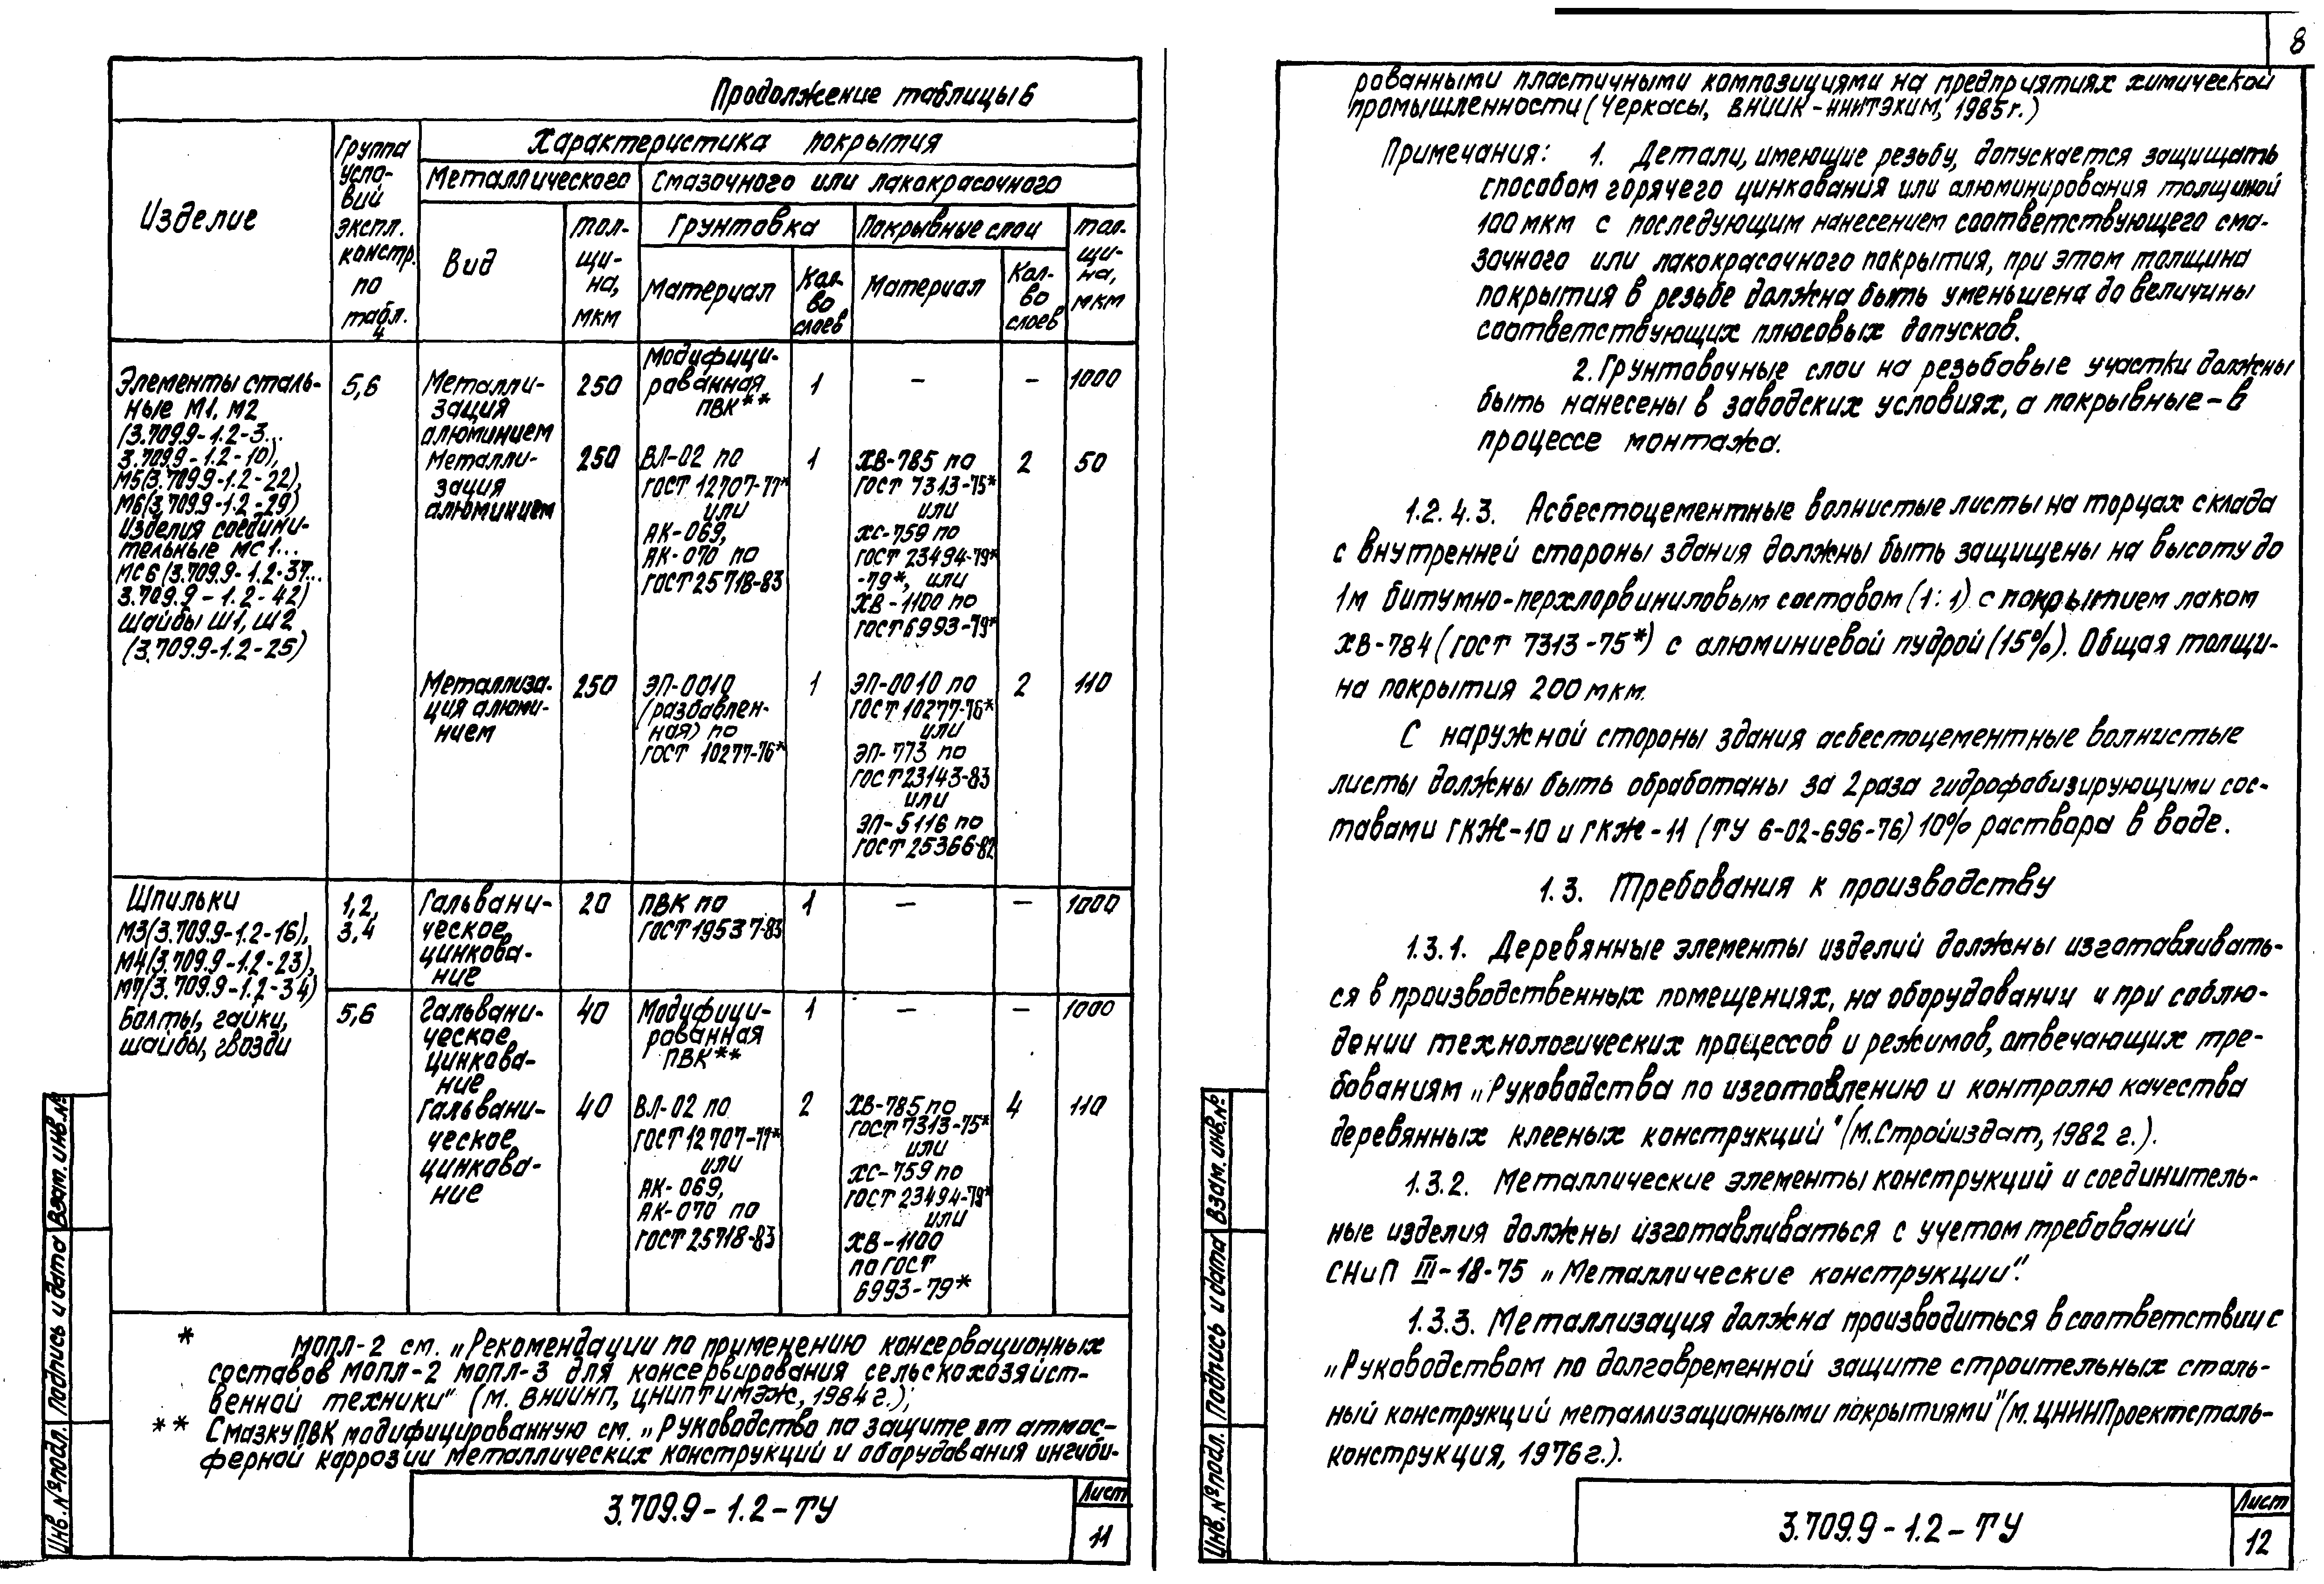 Продолжение таблицы 6
Изделие
Группа
усло-
вий
экспл.
констр.
по
табл.
4
Характеристика покрытия
Металлического
Смазочного или лакокрасочного
Вид
тол-
щи-
на,
мкм
Грунтовка
Покрывные слои
тол-
щи-
на,
мкм
Материал
Кол-
во
слоев
Материал
Кол-
во
слоев
Элементы сталь-
ные М1, М2
(3.709.9-1.2-3...
3.709.9-1.2-10),
М5(3.709.9-1.2-22),
М6(3.709.9-1.2-29)
Изделия соедини-
тельные МС1...
МС6 (3.709.9-1.2-37...
3.709.9-1.2-42)
шайбы Ш1, Ш2
(3.709.9-1.2-25)
5,6
Металли-
зация
алюминием
250
Модифици-
рованная
ПВК**
1
—
—
1000
Металли-
зация
алюминием
250
ВЛ-02 по
ГОСТ 12707-77*
или
АК-069,
АК-070 по
ГОСТ 25718-83
1
ХВ-785 по
ГОСТ 7313-75*
или
ХС-759 по
ГОСТ 23494-79*
-79*, или
ХВ-1100 по
ГОСТ 6993-79*
2
50
Металлиза-
ция алюми-
нием
250
ЭП-0010
(разбавлен-
ная) по
ГОСТ 10277-76*
1
ЭП-0010 по
ГОСТ 10277-76*
или
ЭП-773 по
ГОСТ 23143-83
или
ЭП-5116 по
ГОСТ 25366-82
2
110
Шпильки
М3(3.709.9-1.2-16),
М4(3.709.9-1.2-23),
М7(3.709.9-1.2-34)
Болты, гайки,
шайбы, гвозди
1,2,
3,4
Гальвани-
ческое
цинкова-
ние
20
ПВК по
ГОСТ 19537-83
1
—
—
1000
5,6
Гальвани-
ческое
цинкова-
ние
40
Модифици-
рованная
ПВК**
1
—
—
1000
Гальвани-
ческое
цинкова-
ние
40
ВЛ-02 по
ГОСТ 12707-77*
или
АК-069,
АК-070 по
ГОСТ 25718-83
2
ХВ-785 по
ГОСТ 7313-75*
или
ХС-759 по
ГОСТ 23494-79*
или
ХВ-1100
по ГОСТ
6993-79*
4
110
* мопл-2 см. „Рекомендации по применению консервационных
составов мопл-2 мопл-3 для консервирования сельскохозяйст-
венной техники" (М. ВНИИНП, ЦНИПТИМЭЖ, 1984 г.);
** Смазку ПВК модифицированную см. „Руководство по защите от атмос-
ферной каррозии металлических конструкций и оборудования ингиби-
3.709.9-1.2-ТУ
Лист
11
Инв. № подл. Подпись и дата Взам. инв. №
8
рованными пластичными композициями на предприятиях химической
промышленности (Черкасы, ВНИИК-НИИТЭХИМ, 1985 г.)
Примечания: 1. Детали, имеющие резьбу, допускается защищать
способом горячего цинкования или алюминирования толщиной
100 мкм с последующим нанесением соответствующего сма-
зочного или лакокрасочного покрытия, при этом толщина
покрытия в резьбе должна быть уменьшена до величины
соответствующих плюсовых допусков.
2. Грунтовочные слои на резьбовые участки должны
быть нанесены в заводских условиях, а покрывные - в
процессе монтажа.
1.2.4.3. Асбестоцементные волнистые листы на торцах склада
с внутренней стороны здания должны быть защищены на высоту до
1м битумно-перхлорвиниловым составом (1:1) с покрытием лаком
ХВ-784 (ГОСТ 7313-75*) с алюминиевой пудрой (15%). Общая толщи-
на покрытия 200 мкм.
С наружной стороны здания асбестоцементные волнистые
листы должны быть обработаны за 2 раза гидрофобизирующими сос-
тавами ГКЖ-10 и ГКЖ-11 (ТУ 6-02-696-76) 10% раствора в воде.
1.3. Требования к производству
1.3.1. Деревянные элементы изделий должны изготавливать-
ся в производственных помещениях, на оборудовании и при соблю-
дении технологических процессов и режимов, отвечающих тре-
бованиям „Руководства по изготовлению и контролю качества
деревянных клееных конструкций" (М. Стройиздат, 1982 г.).
1.3.2. Металлические элементы конструкций и соединитель-
ные изделия должны изготавливаться с учетом требований
СНиП III-18-75 „Металлические конструкции".
1.3.3. Металлизация должна производиться в соответствии с
„Руководством по долговременной защите строительных сталь-
ный конструкций металлизационными покрытиями" (М. ЦНИИПроектсталь-
конструкция, 1976 г.).
3.709.9-1.2-ТУ
Лист
12
Инв. № подл. Подпись и дата Взам. инв. №